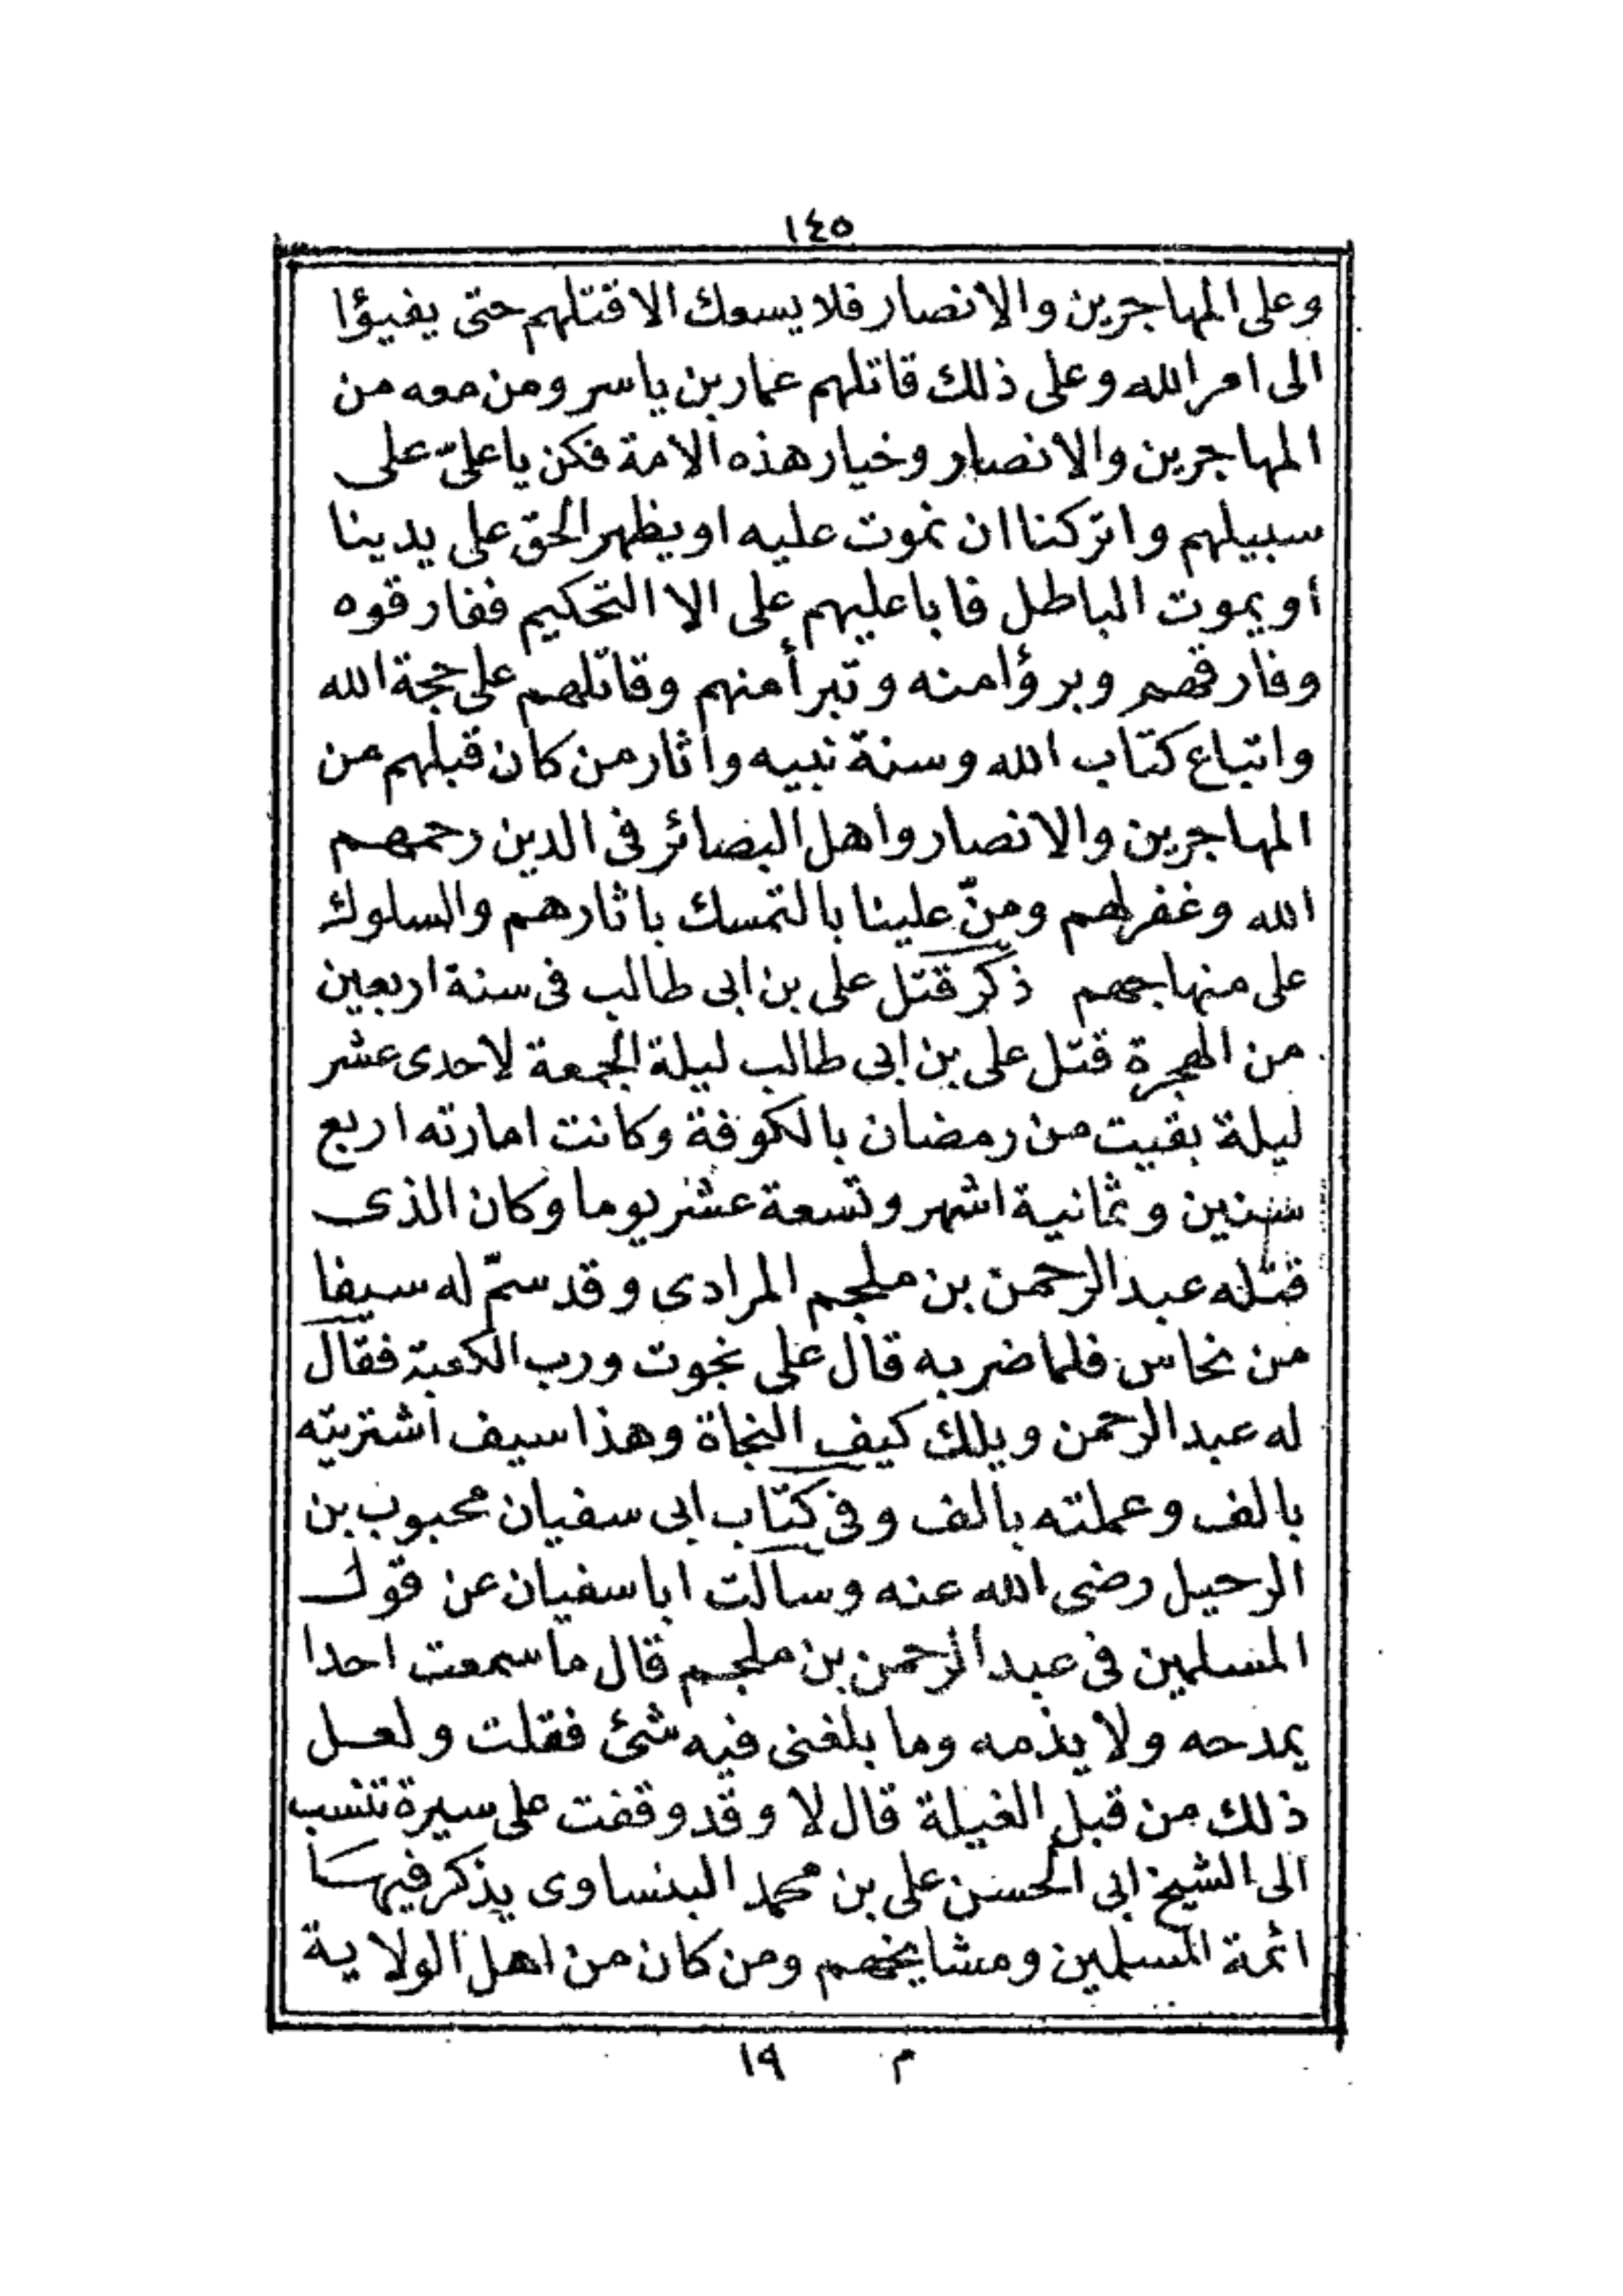 ١٤٥
وعلى المهاجرين والانصار فلا يسعك الا قتلهم حتى يفيؤا
الى امر الله وعلى ذلك قاتلهم عمار بن ياسر ومن معه من
المهاجرين والانصار وخيار هذه الامة فكن يا علىّ على
سبيلهم واتركنا ان نموت عليه او يظهر الحق على يدينا
أو يموت الباطل فابا عليهم على الا التحكيم ففارقوه
وفارقهم وبرؤا منه وتبرأ منهم وقاتلهم على حجة الله
واتباع كتاب الله وسنة نبيه واثار من كان قبلهم من
المهاجرين والانصار واهل البصائر فى الدين رحمهم
الله وغفر لهم ومنّ علينا بالتمسك باثارهم والسلوك
على منهاجهم ذكر قتل على بن ابى طالب فى سنة اربعين
من الهجرة قتل على بن ابى طالب ليلة الجمعة لاحدى عشر
ليلة بقيت من رمضان بالكوفة وكانت امارته اربع
سنين وثمانية اشهر وتسعة عشر يوما وكان الذى
قتله عبد الرحمن بن ملجم المرادى وقد سمّ له سيفا
من نحاس فلما ضربه قال على نجوت ورب الكعبة فقال
له عبد الرحمن ويلك كيف النجاة وهذا سيف اشتريته
بالف وعملته بالف وفى كتاب ابى سفيان محبوب بن
الرحيل رضى الله عنه وسالت ابا سفيان عن قول
المسلمين فى عبد الرحمن بن ملجم قال ما سمعت احدا
يمدحه ولا يذمه وما بلغنى فيه شئ فقلت ولعل
ذلك من قبل الغيلة قال لا وقد وقفت على سيرة تنسب
الى الشيخ ابى الحسن على بن محمد البنساوى يذكر فيها
ائمة المسلمين ومشايخهم ومن كان من اهل الولاية
م ١٩